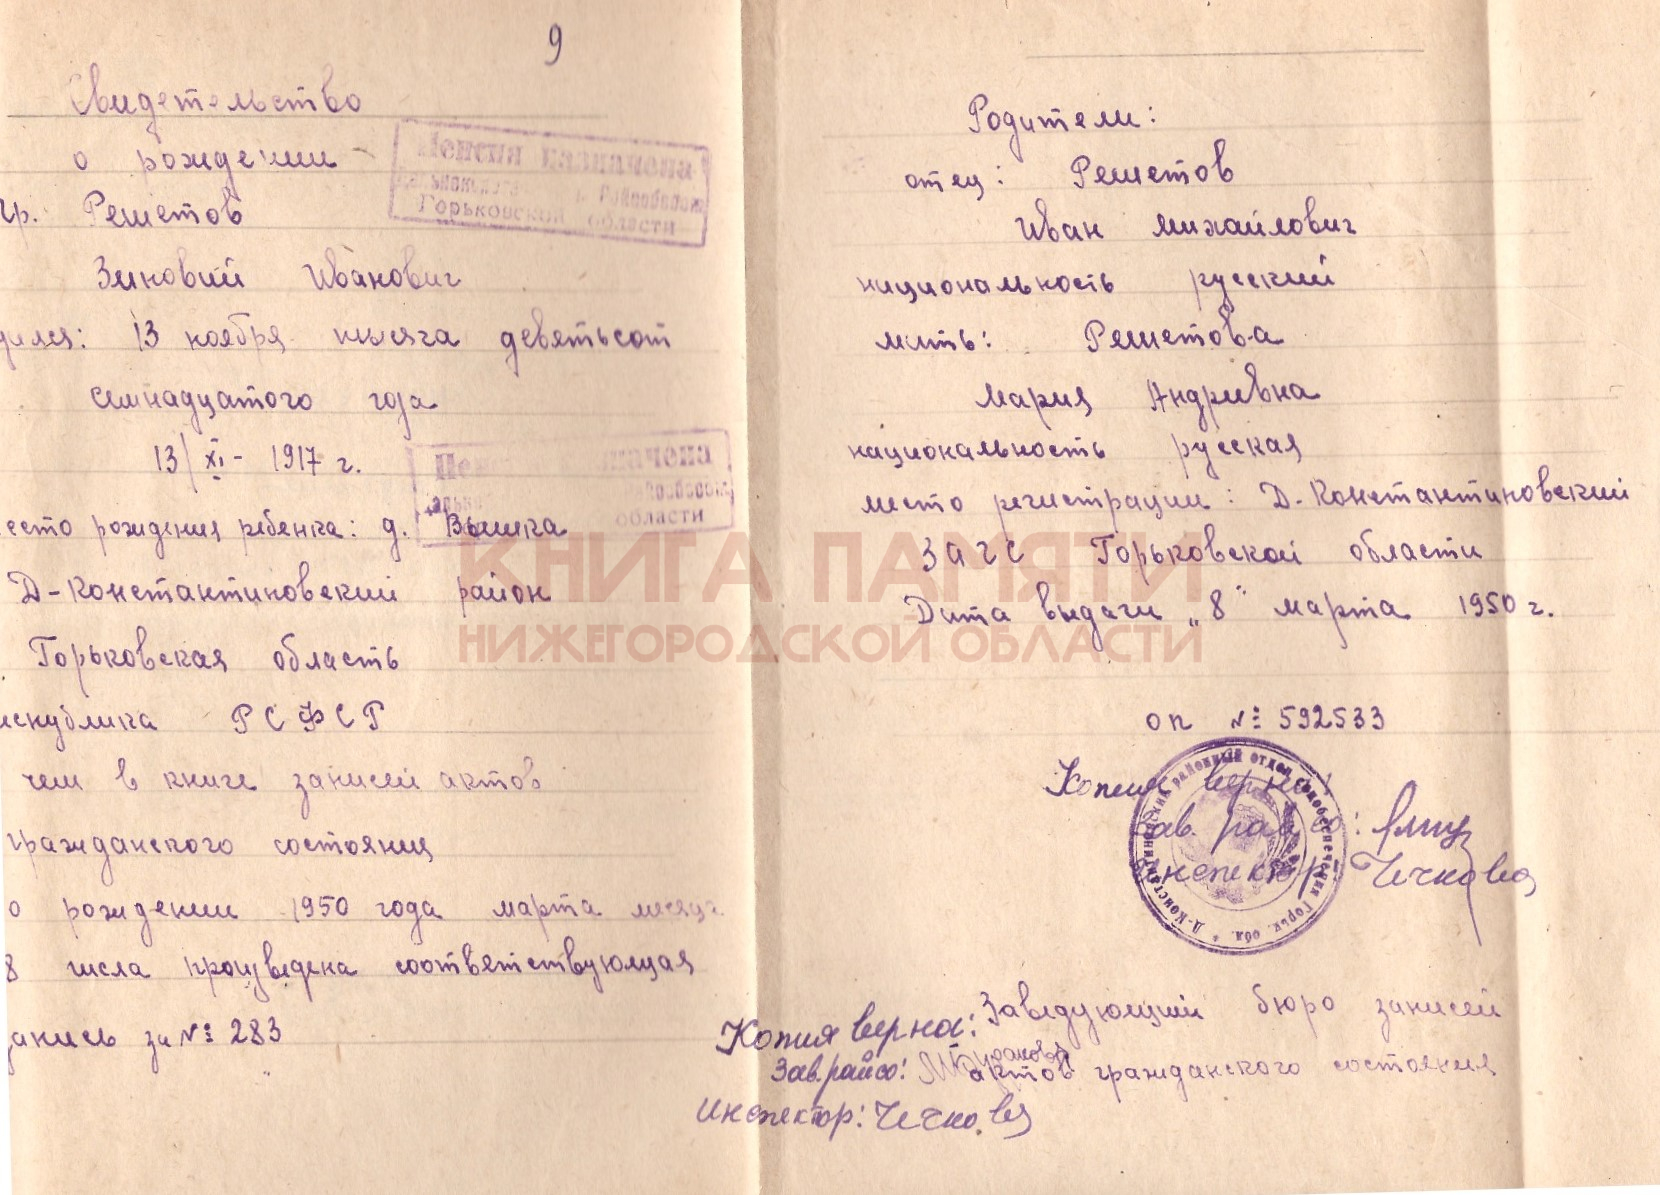 9
Свидетельство
о рождении
гр. Решетов
Зиновий Иванович
дился: 13 ноября тысяча девятьсот
семнадцатого года
13/XI - 1917 г.
есто рождения ребенка: д. Вышка
Д-Константиновский район
Горьковская область
еспублика РСФСР
чем в книге записей актов
гражданского состояния
о рождении 1950 года марта месяца
8 числа произведена соответствующая
запись за № 283
Пенсия назначена
Горьковской области
области
Родители:
отец: Решетов
Иван Михайлович
национальность русский
мать: Решетова
Мария Андреевна
национальность русская
место регистрации: Д-Константиновский
ЗАГС Горьковской области
Дата выдачи „8“ марта 1950 г.
оп № 592533
Копия верна:
Зав. райсо:
Инспектор Чечкова
Д-Константиновский районный отдел соцобеспечения Горьк. обл. *
Заведующий бюро записей
актов гражданского состояния
Копия верна:
Зав. райсо:
Инспектор: Чечкова
КНИГА ПАМЯТИ
НИЖЕГОРОДСКОЙ ОБЛАСТИ